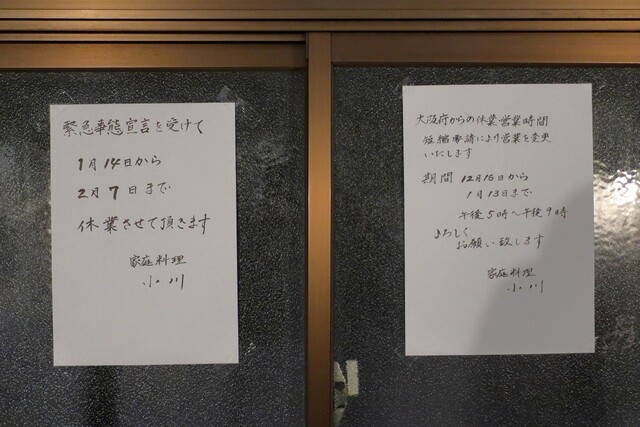 緊急事態宣言を受けて
1月14日から
2月7日まで
休業させて頂きます
家庭料理
小川
大阪府からの休業営業時間
短縮要請により営業を変更
いたします
期間 12月16日から
1月13日まで
午後5時〜午後9時
よろしく
お願い致します
家庭料理
小川